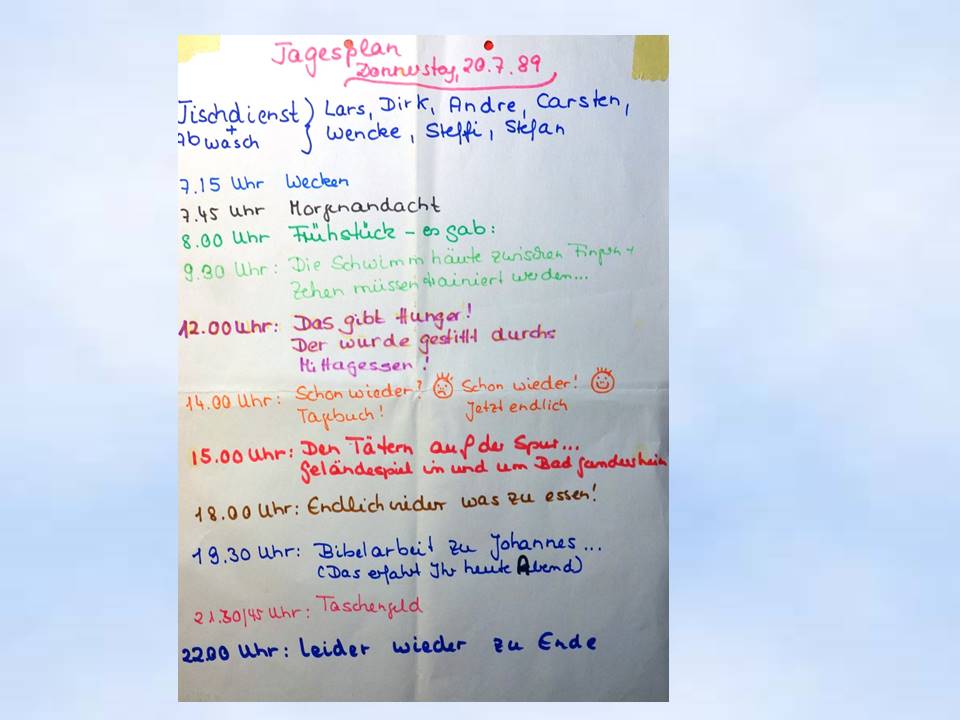 Tagesplan
Donnerstag, 20.7.89
Tischdienst } Lars, Dirk, Andre, Carsten,
+
Abwasch Wencke, Steffi, Stefan
7.15 Uhr Wecken
7.45 Uhr Morgenandacht
8.00 Uhr Frühstück – es gab:
9.30 Uhr: Die Schwimmhäute zwischen Fingern +
Zehen müssen trainiert werden...
12.00 Uhr: Das gibt Hunger!
Der wurde gestillt durchs
Mittagessen!
14.00 Uhr: Schon wieder? Schon wieder!
Tagebuch! Jetzt endlich
15.00 Uhr: Den Tätern auf der Spur...
Geländespiel in und um Bad Gandersheim
18.00 Uhr: Endlich wider was zu essen!
19.30 Uhr: Bibelarbeit zu Johannes...
(Das erfahrt Ihr heute Abend)
21.30/45 Uhr: Taschengeld
22.00 Uhr: Leider wieder zu Ende